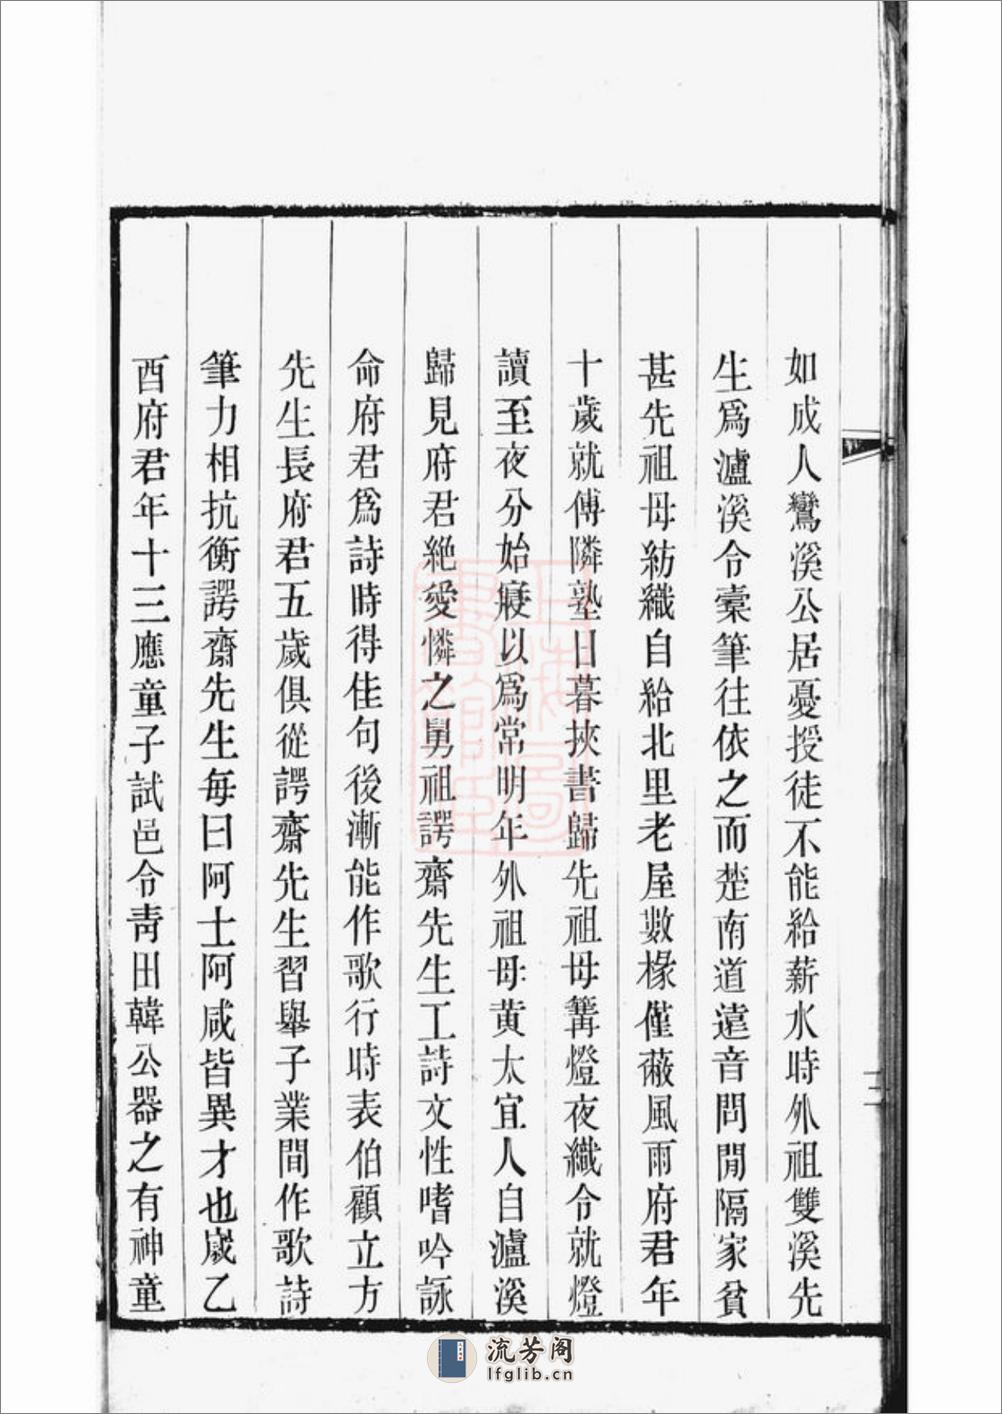 如成人鸞溪公居憂授徒不能給薪水時外祖雙溪先
生爲瀘溪令橐筆往依之而楚南道遠音問閒隔家貧
甚先祖母紡織自給北里老屋數椽僅蔽風雨府君年
十歲就傅隣塾日暮挾書歸先祖母篝燈夜織令就燈
讀至夜分始寢以爲常明年外祖母黄太宜人自瀘溪
歸見府君絶愛憐之舅祖諤齋先生工詩文性嗜吟詠
命府君爲詩時得佳句後漸能作歌行時表伯顧立方
先生長府君五歲俱從諤齋先生習舉子業間作歌詩
筆力相抗衡諤齋先生每曰阿士阿咸皆異才也歲乙
酉府君年十三應童子試邑令青田韓公器之有神童
二
流芳阁
lfglib.cn